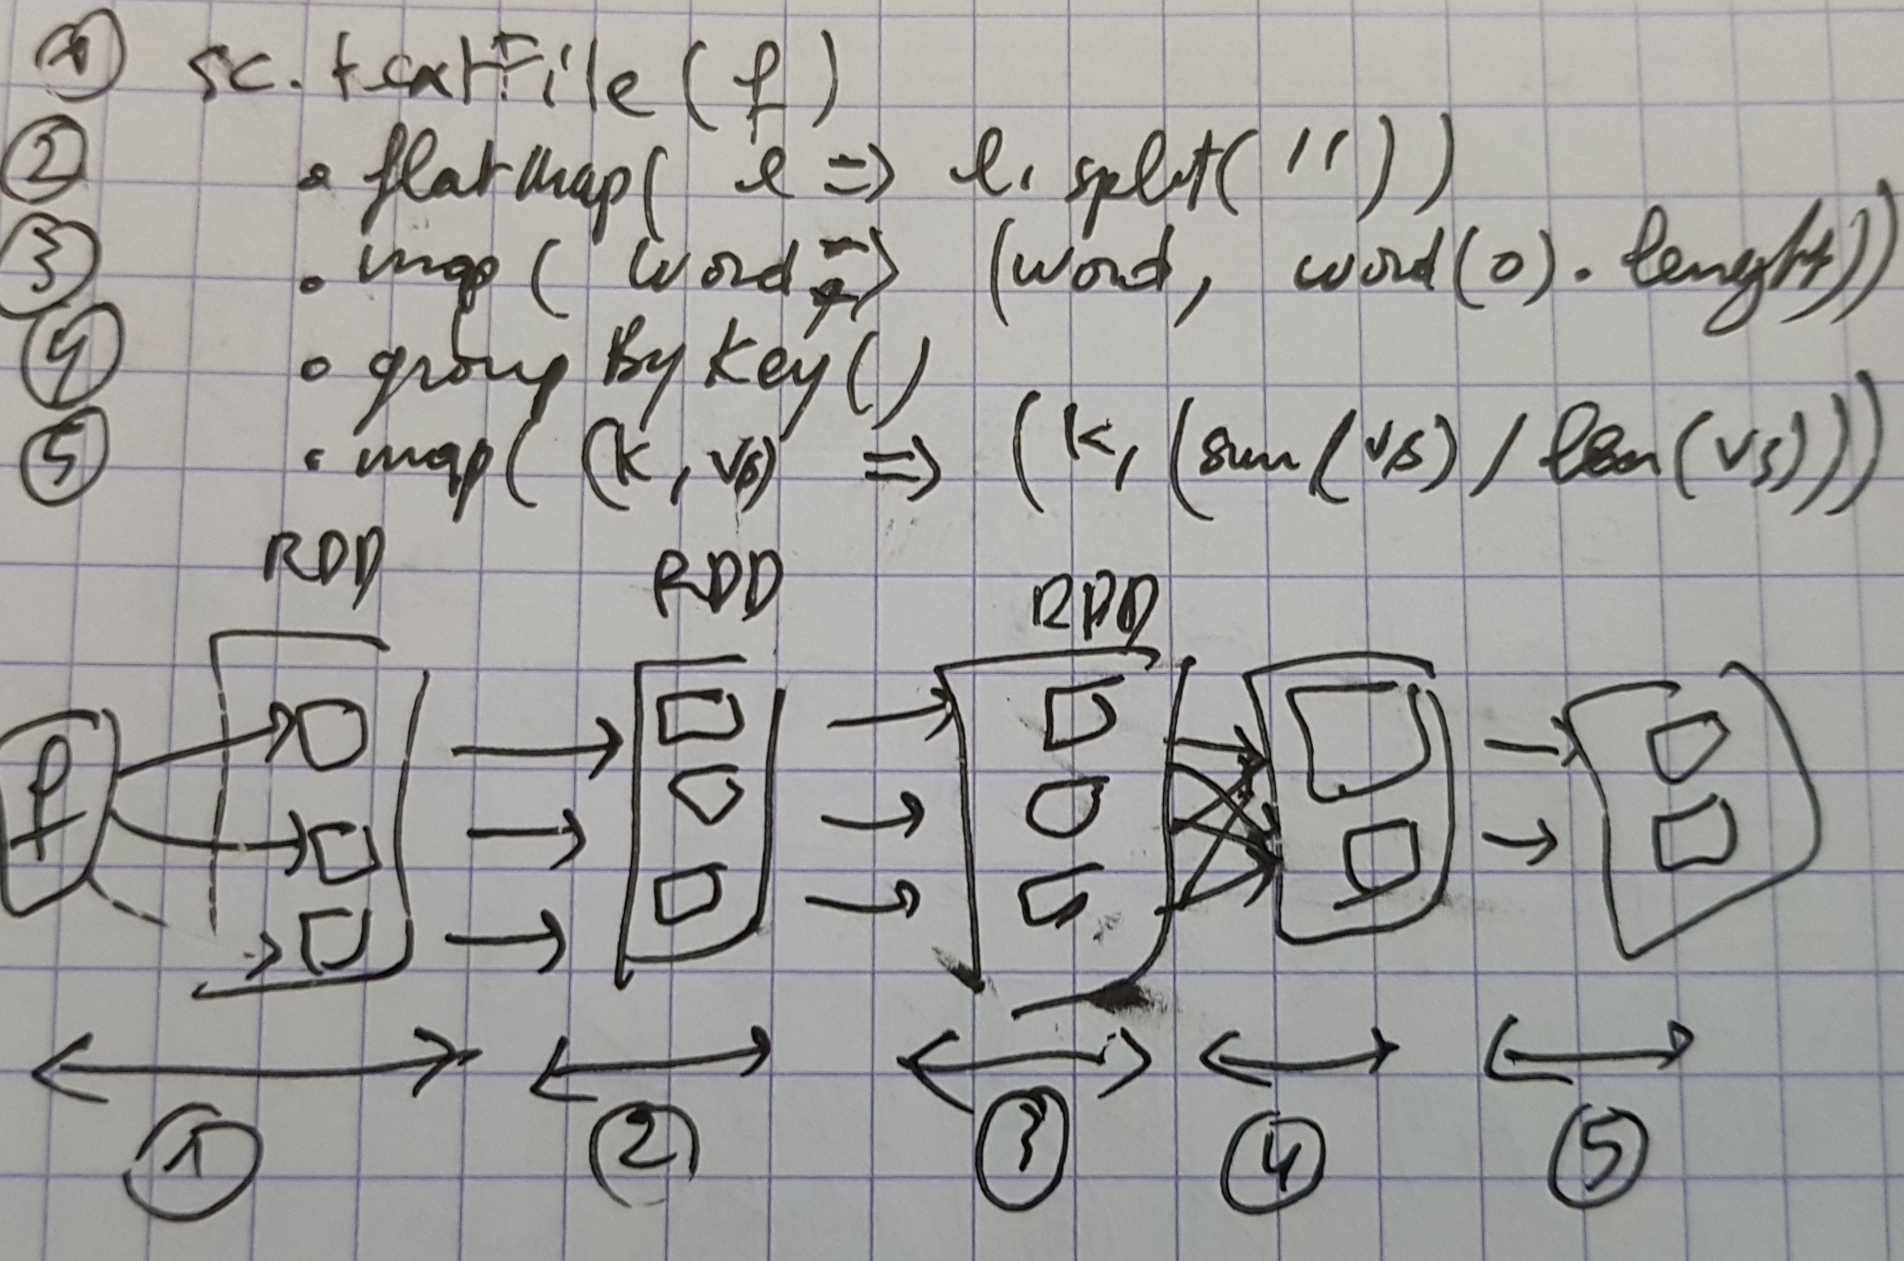 ① sc.textFile(f)
② .flatmap( l => l.split(" "))
③ .map( word => (word, word(0).lenght))
④ .group By Key()
⑤ .map( (k, vs) => (k, (sum(vs) / len(vs)))
RDD RDD RDD
f
① ② ③ ④ ⑤